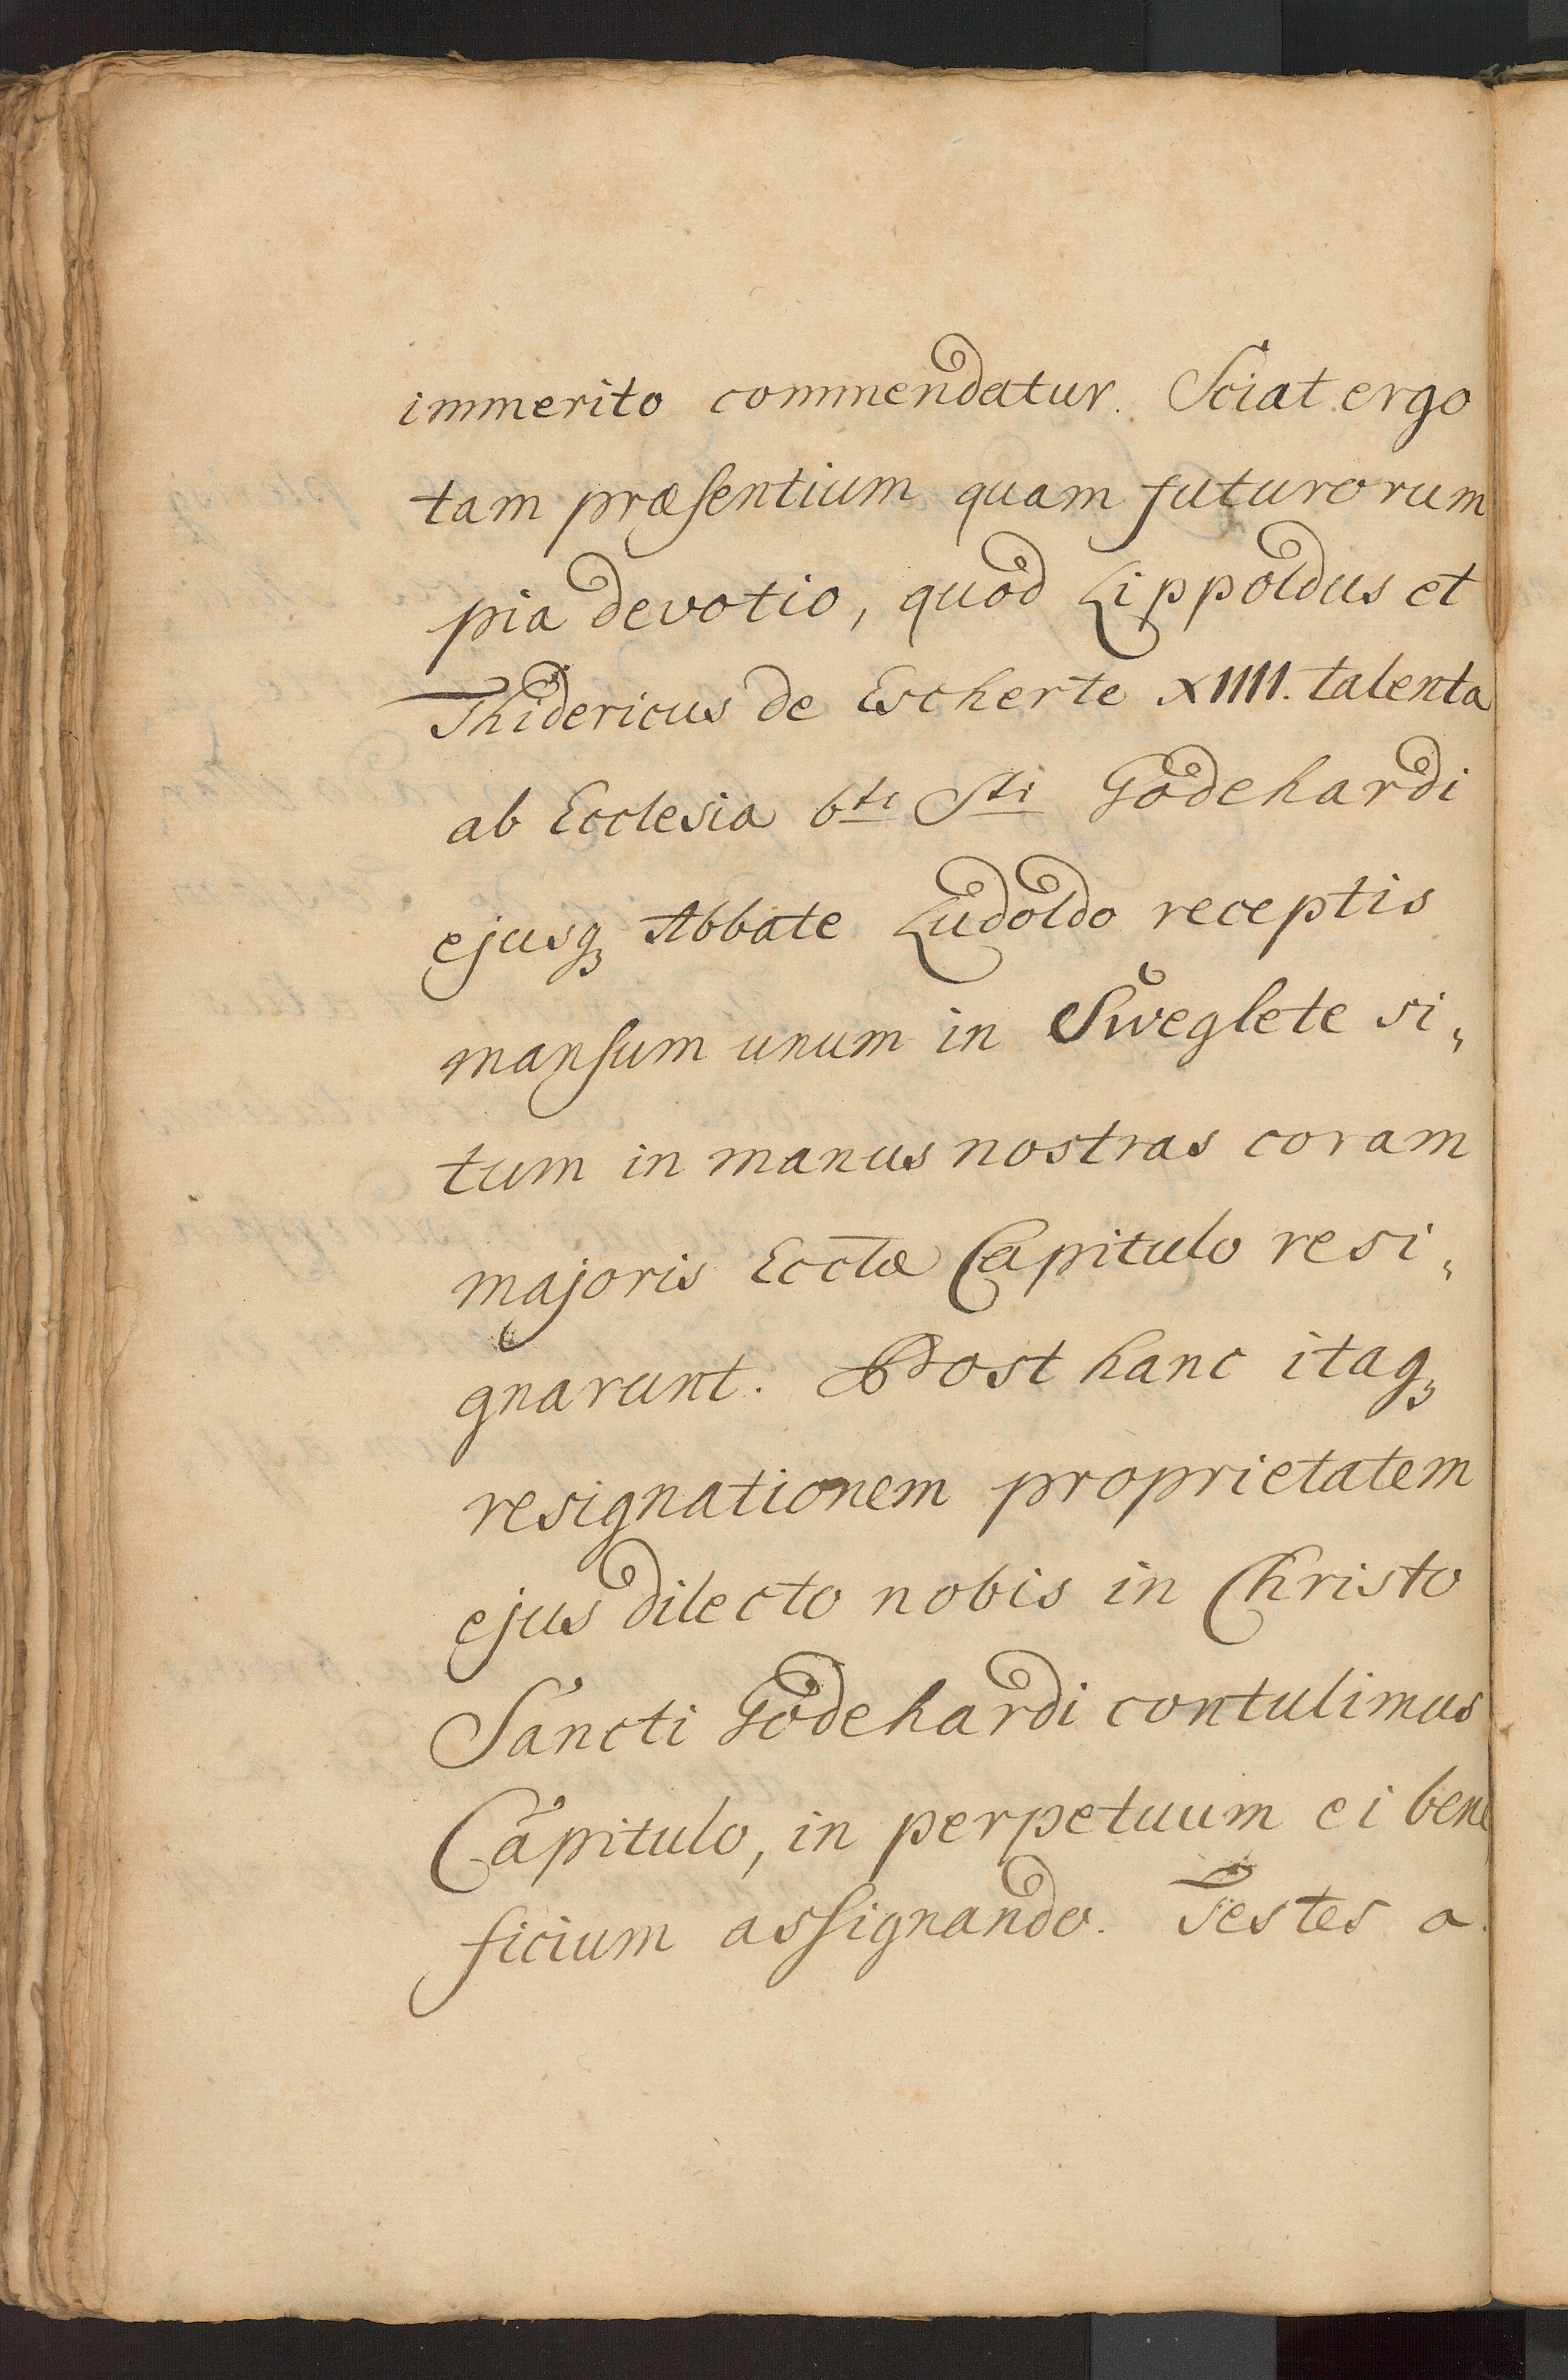 immerito commendatur. Sciat ergo
tam præsentium quam futurorum
pia devotio, quod Lippoldus et
Thidericus de Escherte XIIII. talenta
ab Ecclesia bti Sti Godehardi
ejusq₃ Abbate Ludoldo receptis
mansum unum in Sweglete si„
tum in manus nostras coram
majoris Ecclæ Capitulo resi„
gnarunt. Post hanc itaq₃
resignationem proprietatem
ejus dilecto nobis in Christo
Sancti Godehardi contulimus
Capitulo, in perpetuum ei bene
ficium assignando. Testes a.